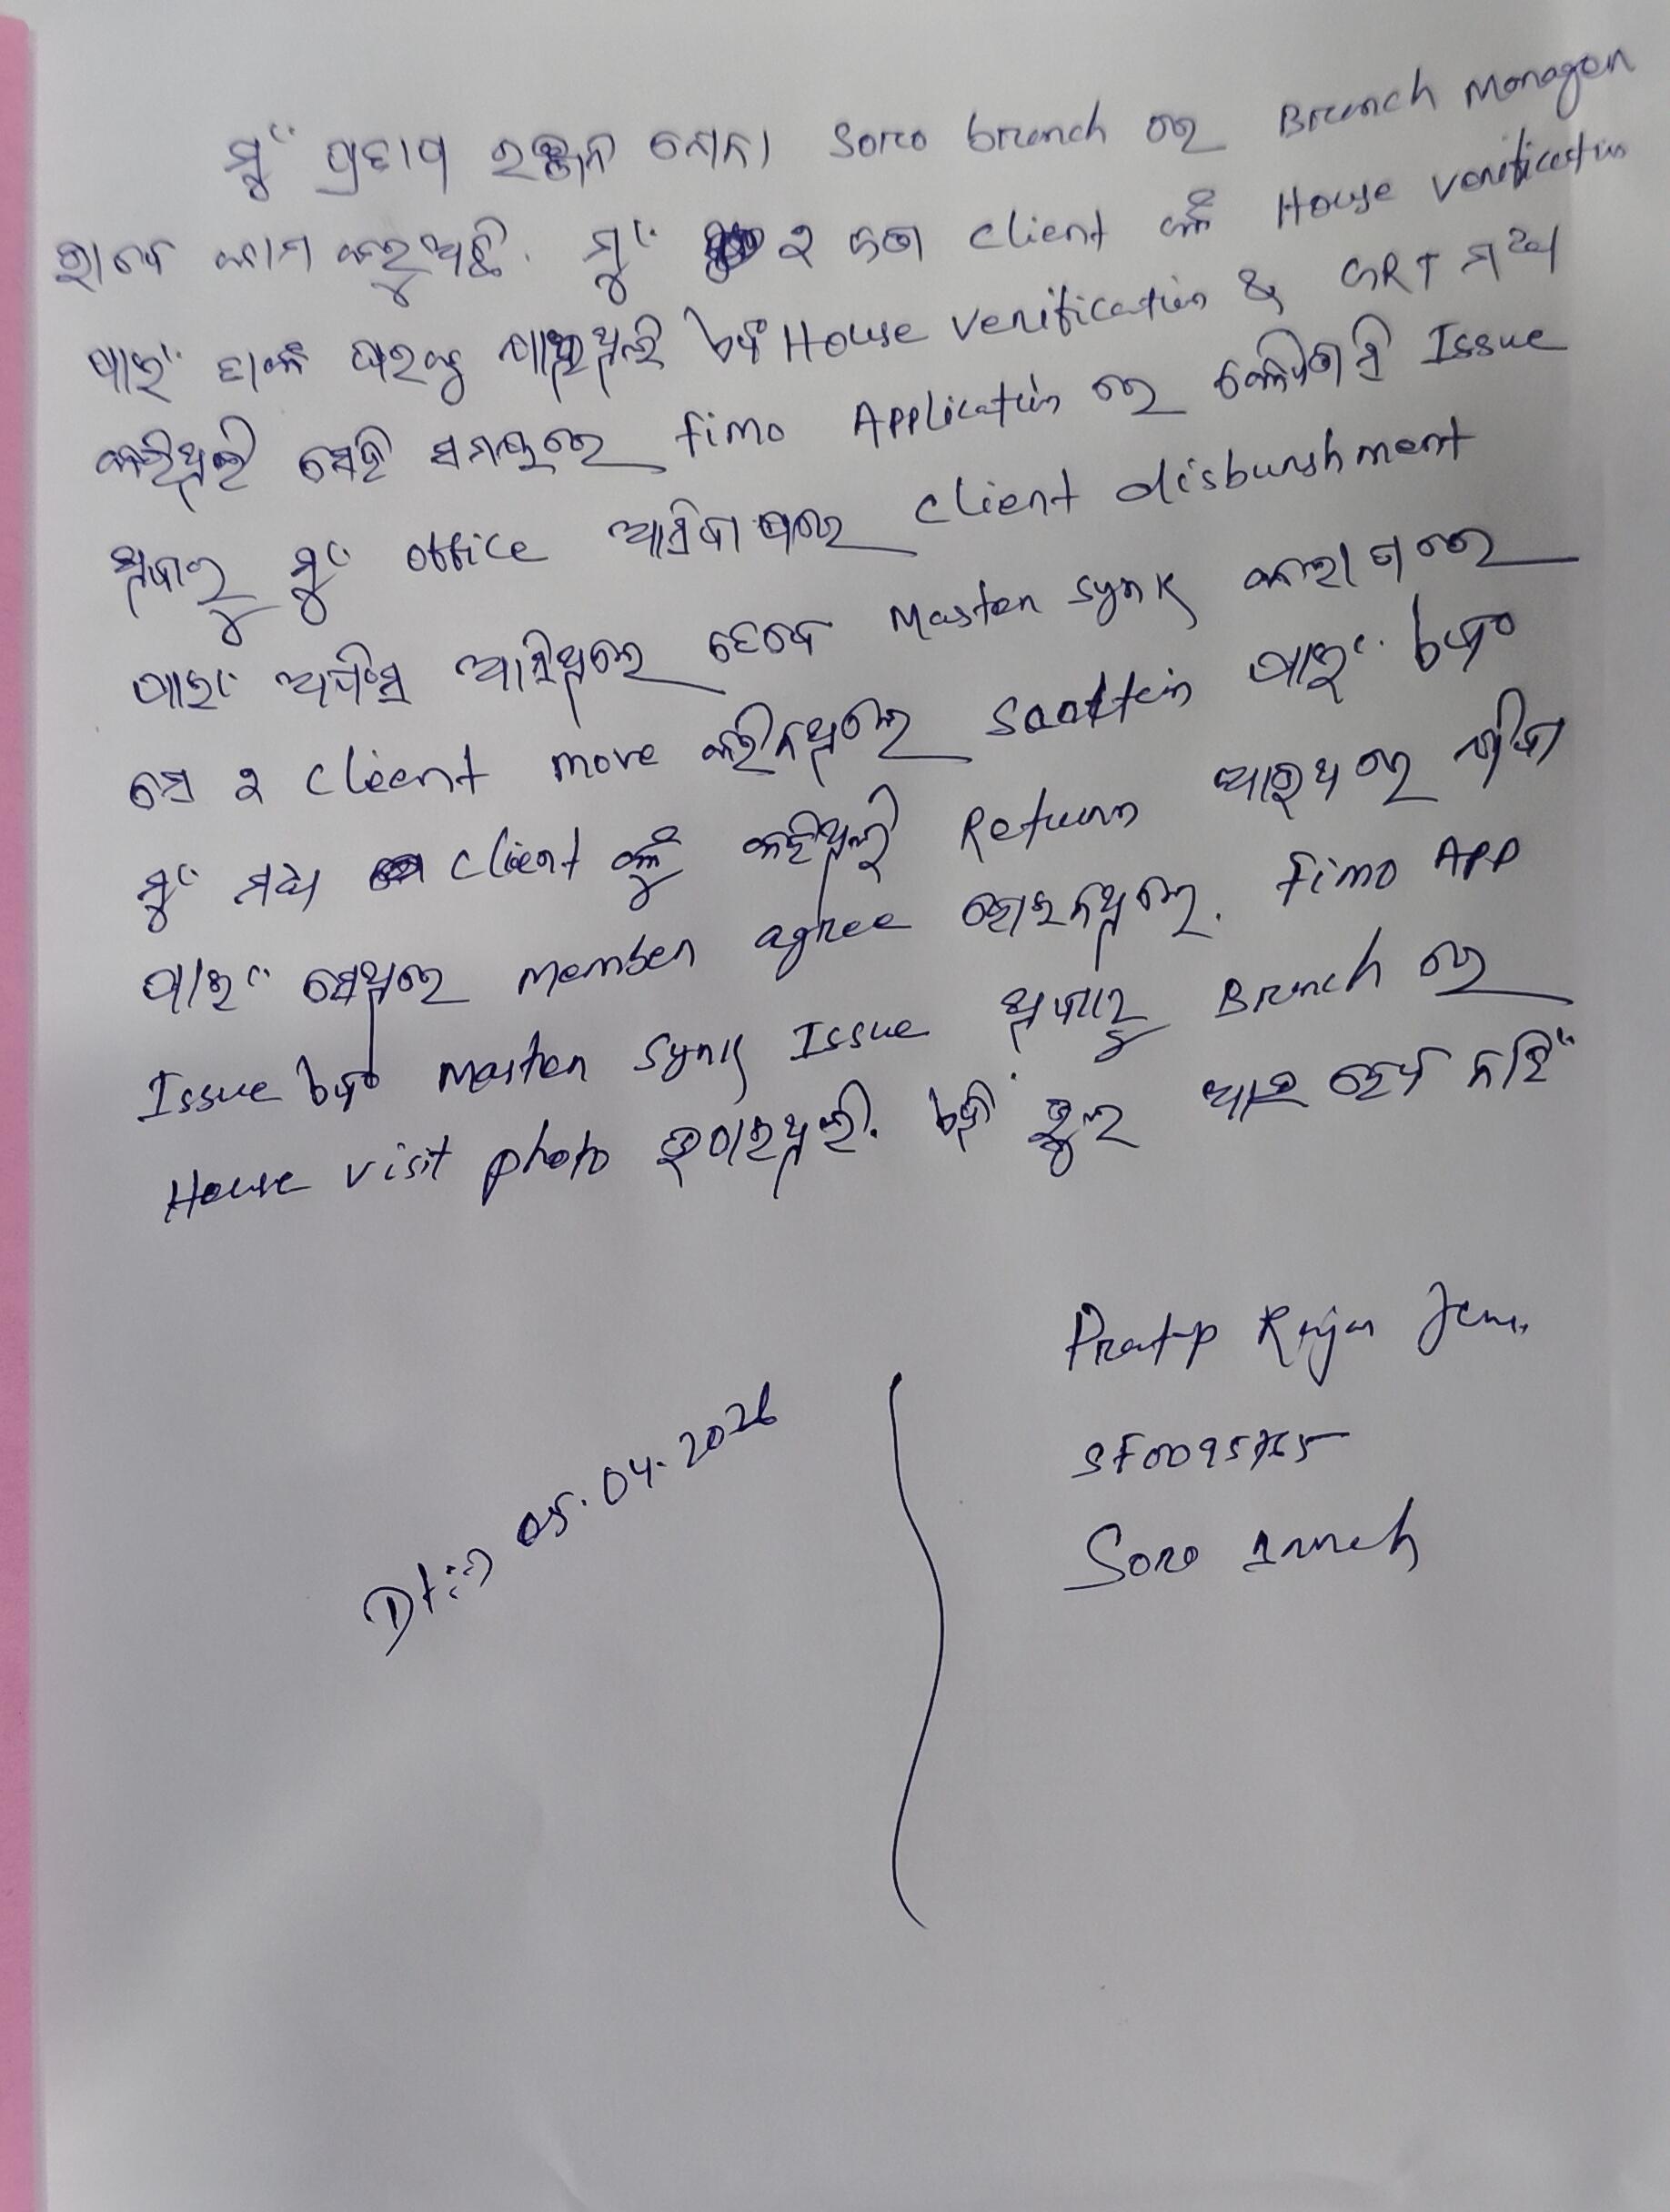 ମୁଁ ପ୍ରତାପ ରଞ୍ଜନ ଜେନା Soro branch ରେ Branch Manager
ଭାବେ କାମ କରୁଅଛି. ମୁଁ ୨ ଜଣ client ଙ୍କ House verification
ପାଇଁ ତାଙ୍କ ଘରକୁ ଯାଇଥିଲି ଏବଂ House verification & GRT ମଧ୍ୟ
କରିଥିଲି ସେହି ସମୟରେ fimo Application ରେ Issue
ଥିବାରୁ ମୁଁ office ଆସିବା ପରେ client disburshment
ପାଇଁ ଅଫିସ ଆସିଥିଲେ ତେବେ Master Synk କରାଗଲେ
ସେ ୨ client move କରିନଥିଲେ ପାଇଁ ଏବଂ
ମୁଁ ମଧ୍ୟ client ଙ୍କୁ କହିଥିଲି Return ଆଉଥରେ ଯିବା
ପାଇଁ ସେଥିରେ member agree ହୋଇନଥିଲେ. fimo App
Issue ଏବଂ Master Synk Issue ଥିବାରୁ Branch ରେ
House visit photo ଉଠାଇଥିଲି. ଏହି ଭୁଲ ଆଉ ହେବ ନାହିଁ
Pratap Ranjan Jena
Soro Branch
Dt:-) 05.04.2026